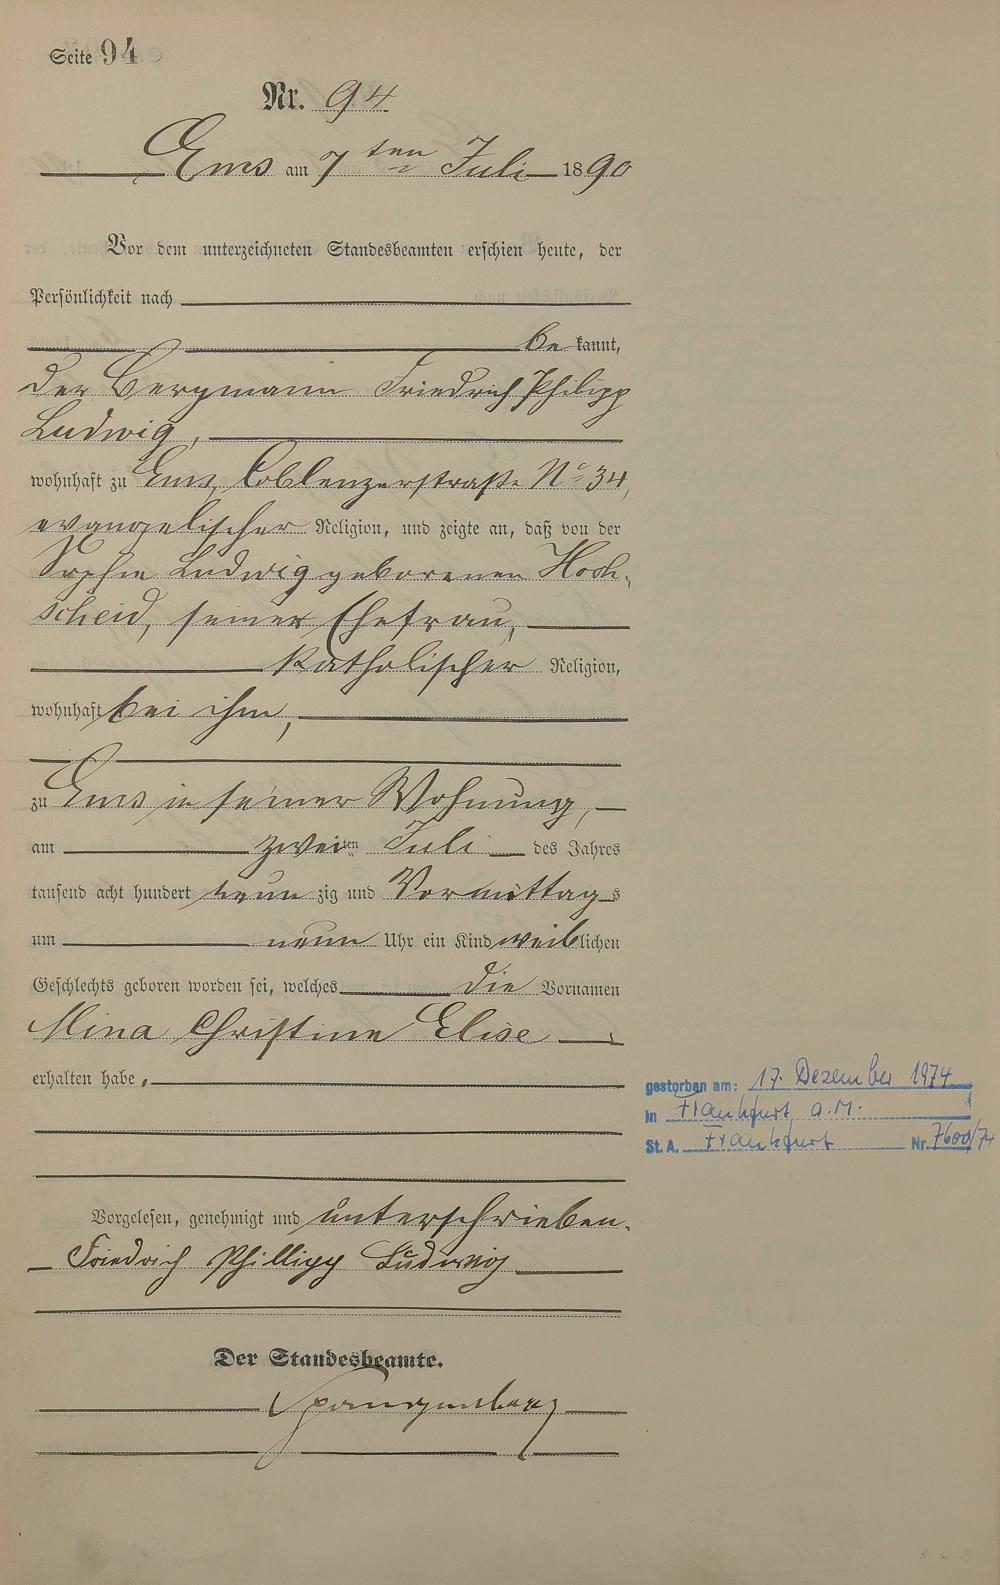 Seite 94
Nr. 94
Ems am 7ten Juli 1890
Vor dem unterzeichneten Standesbeamten erschien heute, der
Persönlichkeit nach
be kannt,
der Bergmann Friedrich Philipp
Ludwig,
wohnhaft zu Ems, Coblenzerstraße No 34,
evangelischer Religion, und zeigte an, daß von der
Sophie Ludwig geborenen Hoch-
scheid, seiner Ehefrau,
katholischer Religion,
wohnhaft bei ihm,
zu Ems in seiner Wohnung,
am zweiten Juli des Jahres
tausend acht hundert neun zig und Vormittags
um neun Uhr ein Kind weiblichen
Geschlechts geboren worden sei, welches die Vornamen
Mina Christine Elise
erhalten habe.
gestorben am: 17. Dezember 1974
in Frankfurt a.M.
St. A. Frankfurt Nr. 7600/74
Vorgelesen, genehmigt und unterschrieben.
Friedrich Phillipp Ludwig
Der Standesbeamte.
Spangenberg